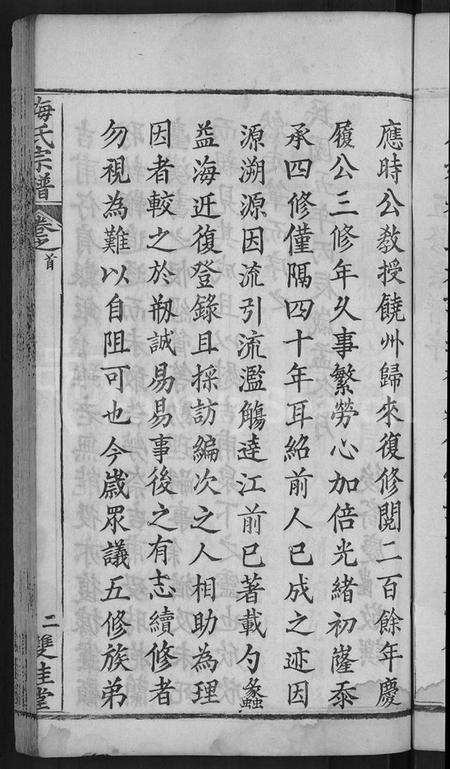 應時公敎授饒州歸來復修閱二百餘年慶
履公三修年久事繁勞心加倍光緒初嶐忝
承四修僅隔四十年耳紹前人已成之迹因
源溯源因流引流濫觴達江前已著載勺蠡
益海近復登錄且採訪編次之人相助為理
因者較之於剏誠易易事後之有志續修者
勿視為難以自阻可也今歲眾議五修族弟
梅氏宗譜
卷之首
二
雙桂堂